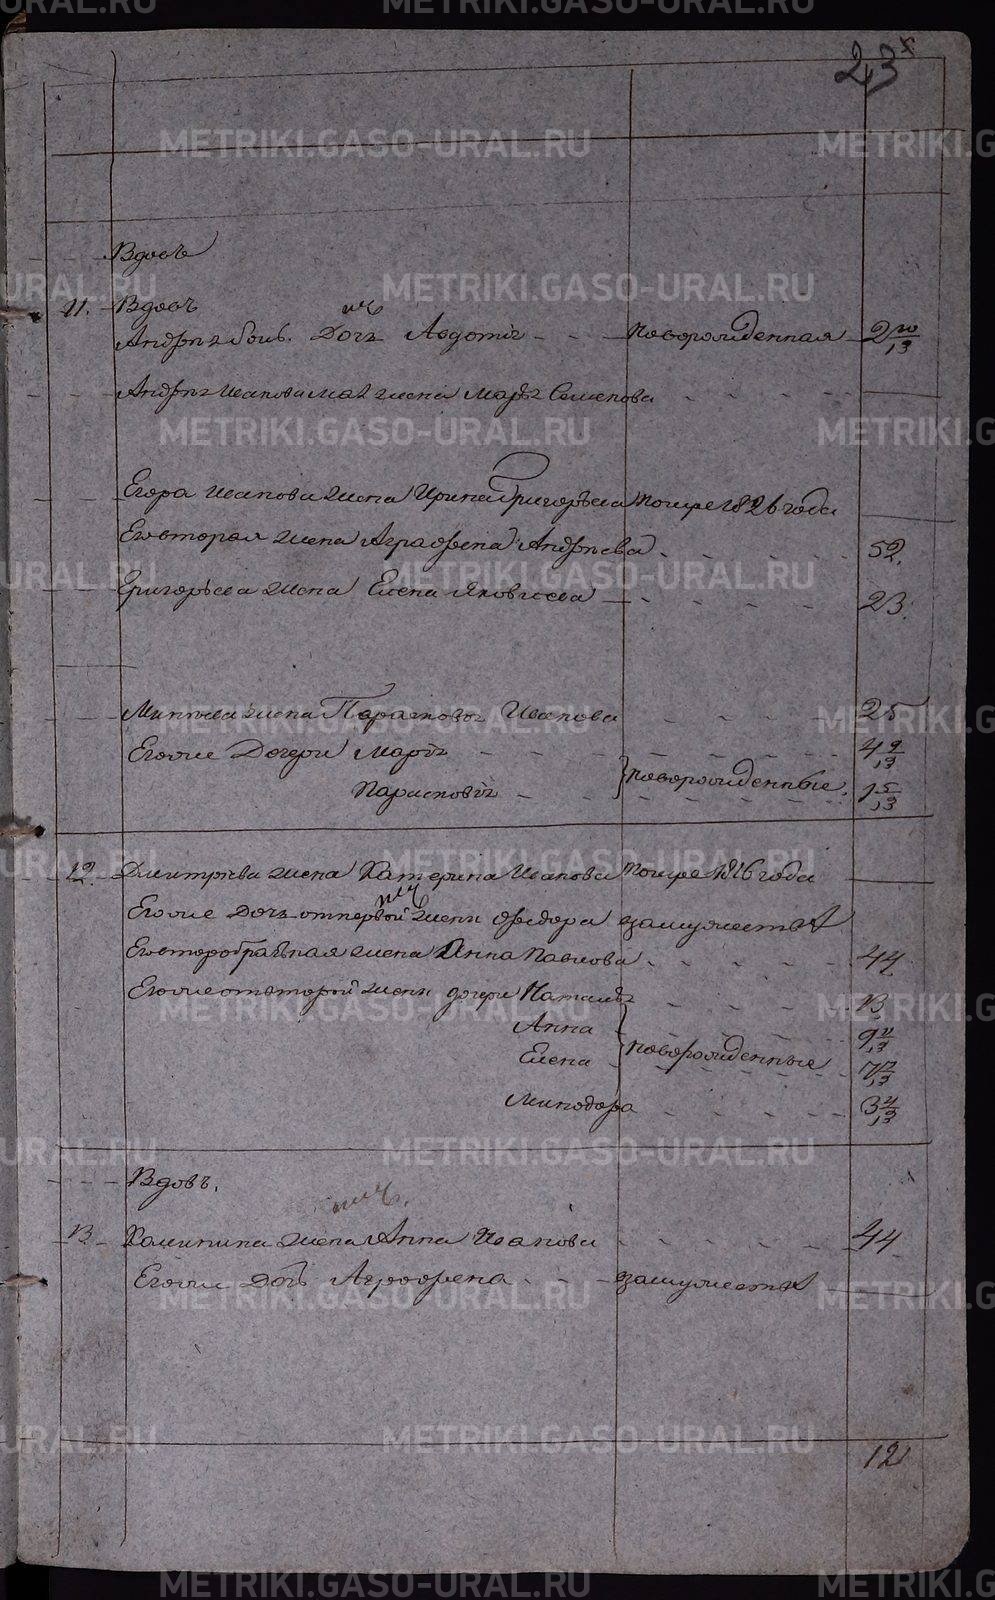 23
Вдовъ
11. Вдовъ
Дочь Авдотья новорожденная 2 10/13
жена Марья Семенова
Егора Иванова жена Ирина Григорьева помре 1826 года
Его вторая жена Аграфена Андреева 52.
Григорьева жена Елена Яковлева 23.
жена Парасковья Иванова 25
Его же Дочери Марья 4 9/13
Парасковья новорожденные 1 5/13
12. Дмитрева жена Катерина Иванова помре 1816 года
Его же дочь от первой жены Федора замужеств
Его второбрачная жена Анна Павлова 44
Его же от второй жены дочери Наталья 13
Анна 9 11/13
Елена новорожденные
Минодора
Вдовъ.
13 жена Анна Иванова 44
Его же дочь Аграфена замужеств
12
METRIKI.GASO-URAL.RU